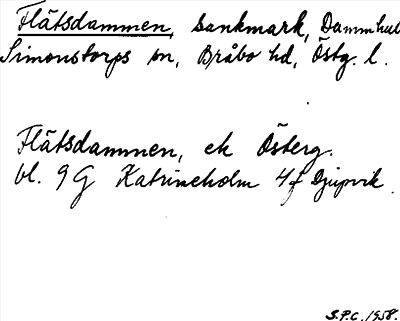 Flätsdammen, sankmark, Dammhult
Simonstorps sn, Bråbo hd, Östg. l.
Flätsdammen, ek Österg.
bl. 9 G Katrineholm 4f Djupvik.
S.P.C. 1958.